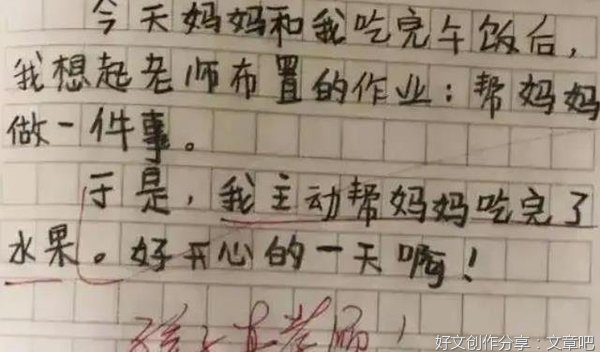 今天妈妈和我吃完午饭后，
我想起老师布置的作业：帮妈妈
做一件事。
于是，我主动帮妈妈吃完了
水果。好开心的一天啊！
好文创作分享：文章吧